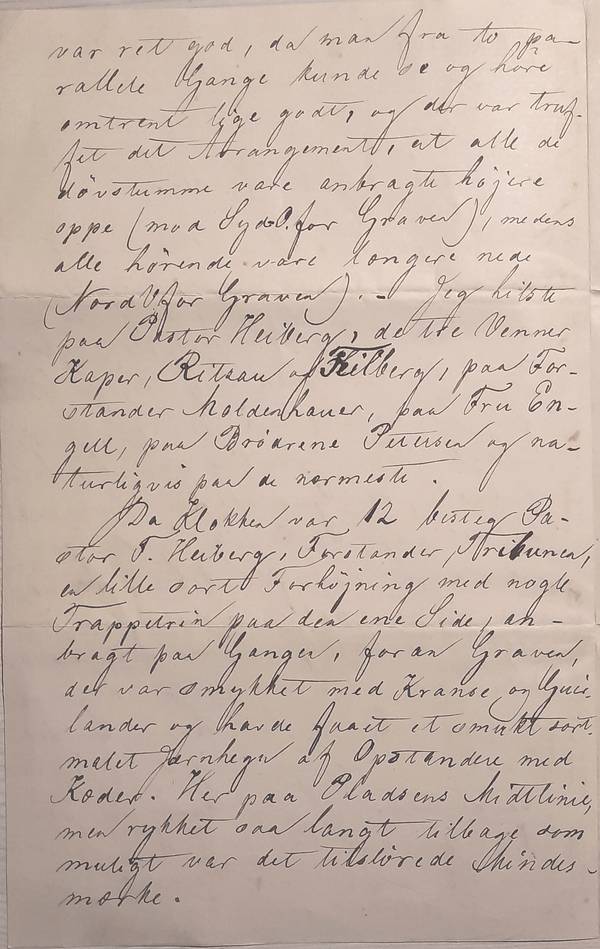 var ret god, da man fra to pa-
rallele Gange kunde se og høre
omtrent lige godt, og der var truf-
fet det Arrangement, at alle de
døvstumme vare anbragte højere
oppe (mod Syd O. for Graven), medens
alle hørende vare længere nede
(Nord V. for Graven). - Jeg hilste
paa Pastor Heiberg, de tre Venner
Kaper, Ritzau og Feilberg, paa For-
stander Moldenhauer, paa Fru En-
gell, paa Brødrene Petersen og na-
turligvis paa de nærmeste.
Da Klokken var 12 besteg Pa-
stor T. Heiberg, Forstander, Tribunen,
en lille sort Forhøjning med nogle
Trappetrin paa den ene Side, an-
bragt paa Gangen, foran Graven,
der var smykket med Kranse og Guir-
lander og havde faaet et smukt sort-
malet Jærnhegn af Opstandere med
Kæder. Her paa Pladsens Midtlinie,
men rykket saa langt tilbage som
muligt var det tilslørede Mindes-
mærke.